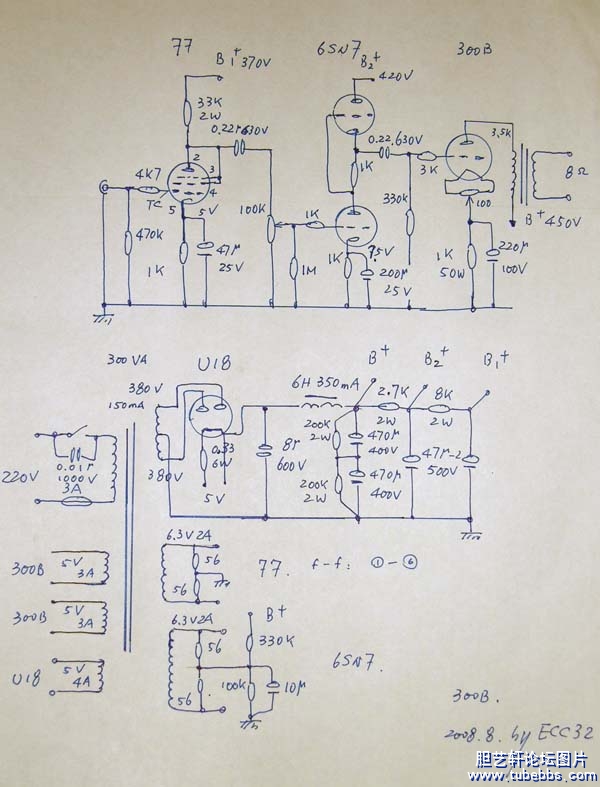 77
6SN7
300B
B1+ 370V
B2+
420V
33K
2W
0.22μ 630V
0.22 630V
3.5K
2
3
4
4K7
TC
5
5V
1K
3K
100
8Ω
100K
1K
330K
B+ 450V
470K
1K
47μ
25V
1M
1K
7.5V
200μ
25V
1K
50W
220μ
100V
300VA
U18
380V
150mA
6H 350mA
B+
B2+
B1+
2.7K
2W
8K
2W
200K
2W
470μ
400V
0.33
6W
8μ
600V
47μ-2
500V
380V
5V
200K
2W
470μ
400V
220V
0.01μ
1000V
3A
6.3V2A
56
56
77. f-f: ①-⑥
300B
5V
3A
300B
5V
3A
6.3V2A
B+
330K
56
56
100K
10μ
6SN7.
U18
5V
4A
300B.
2008.8. by ECC32
胆艺轩论坛图片
www.tubebbs.com